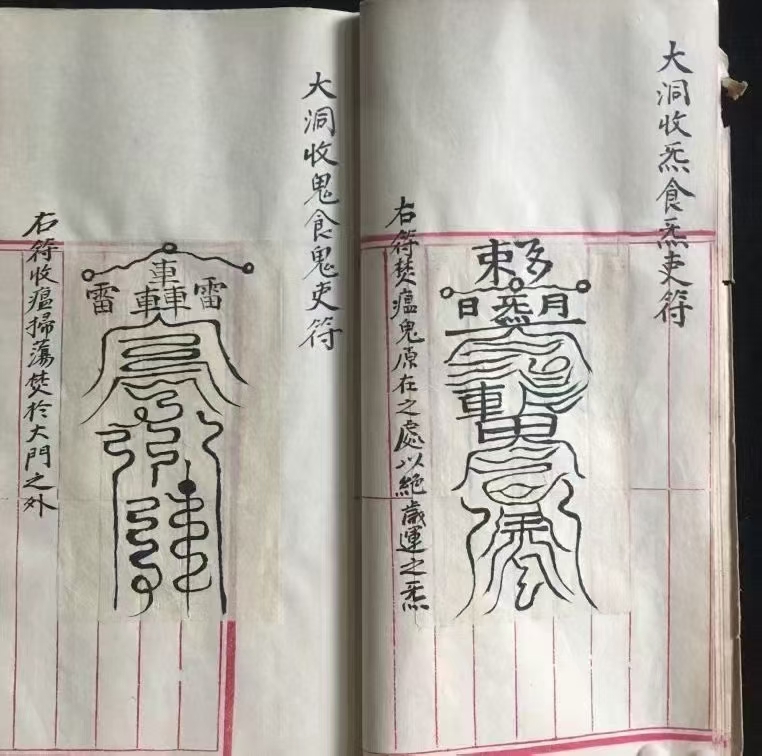 大洞收炁食炁吏符
敕
日炁月
車
右符焚瘟鬼原在之處以絕歲運之炁
大洞收鬼食鬼吏符
雷轟雷
右符收瘟掃蕩焚於大門之外